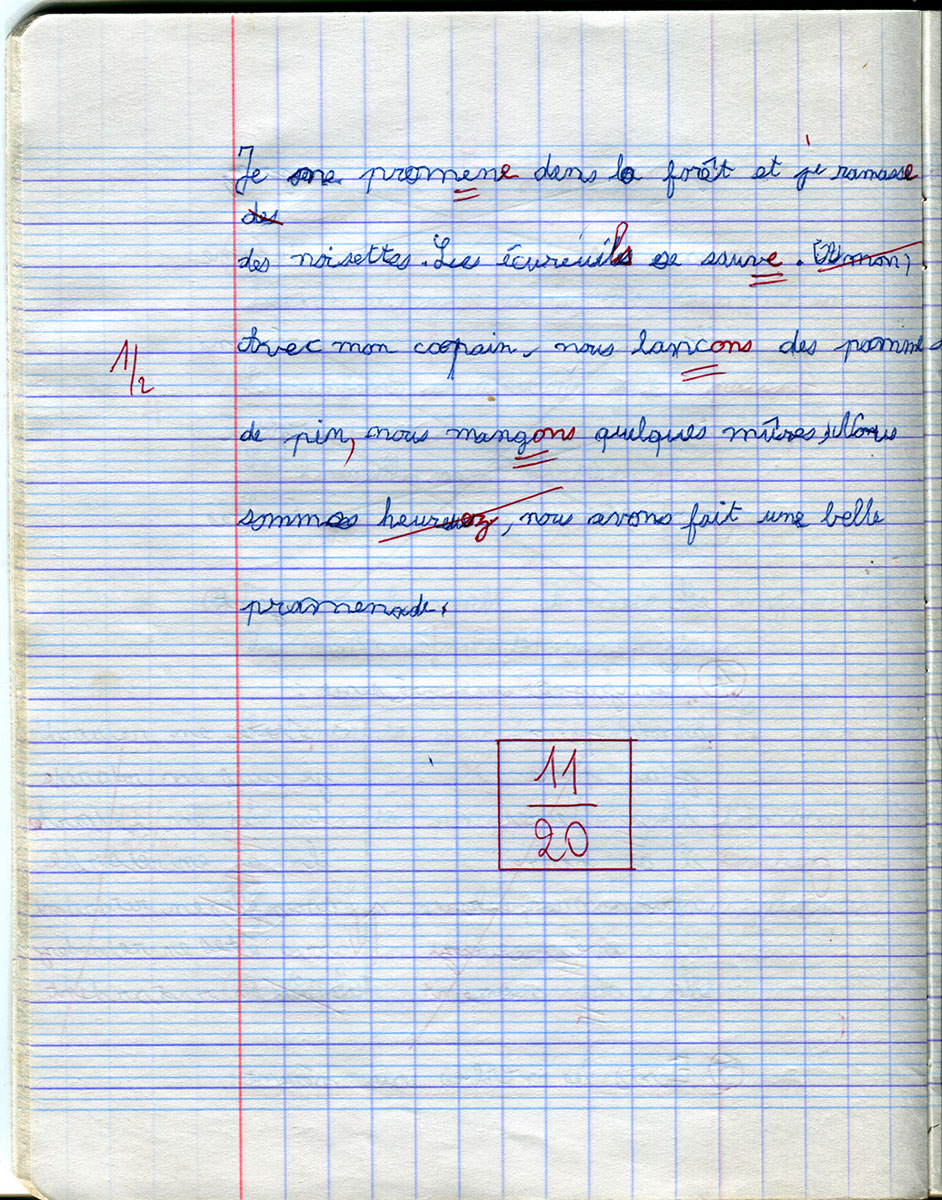 Je me promene dens la forêt et je ramasse
des
des noisettes. Les écureuils se sauve.
Avec mon copain, nous lancons des pommes
1/2
de pin, nous mangons quelques mûres, Nous
sommes heureuz, nous avons fait une belle
promenade.
11
20